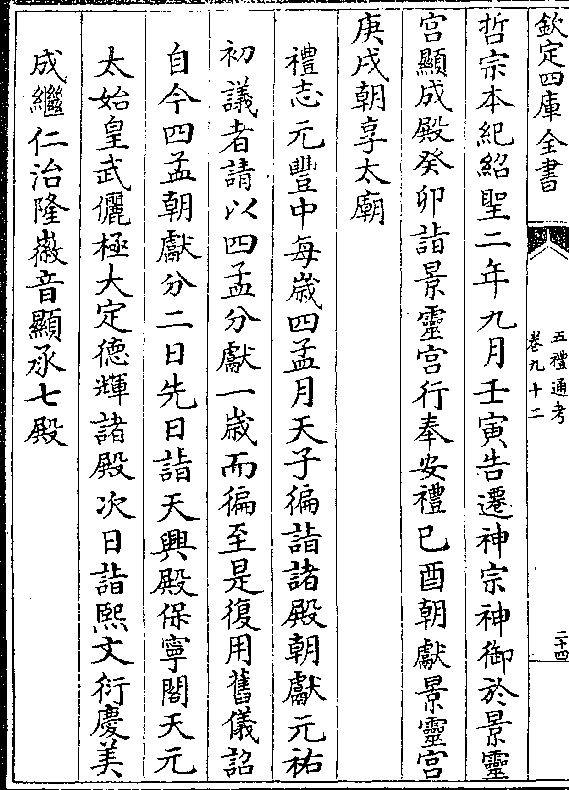 欽定四庫全書
五禮通考
卷九十二
二十四
哲宗本紀紹聖二年九月壬寅告遷神宗神御於景靈
宮顯成殿癸卯詣景靈宮行奉安禮已酉朝獻景靈宮
庚戌朝享太廟
禮志元豐中每歲四孟月天子徧詣諸殿朝獻元祐
初議者請以四孟分獻一歲而徧至是復用舊儀詔
自今四孟朝獻分二日先日詣天興殿保寧閣天元
太始皇武儷極大定德輝諸殿次日詣熙文衍慶美
成繼仁治隆徽音顯承七殿